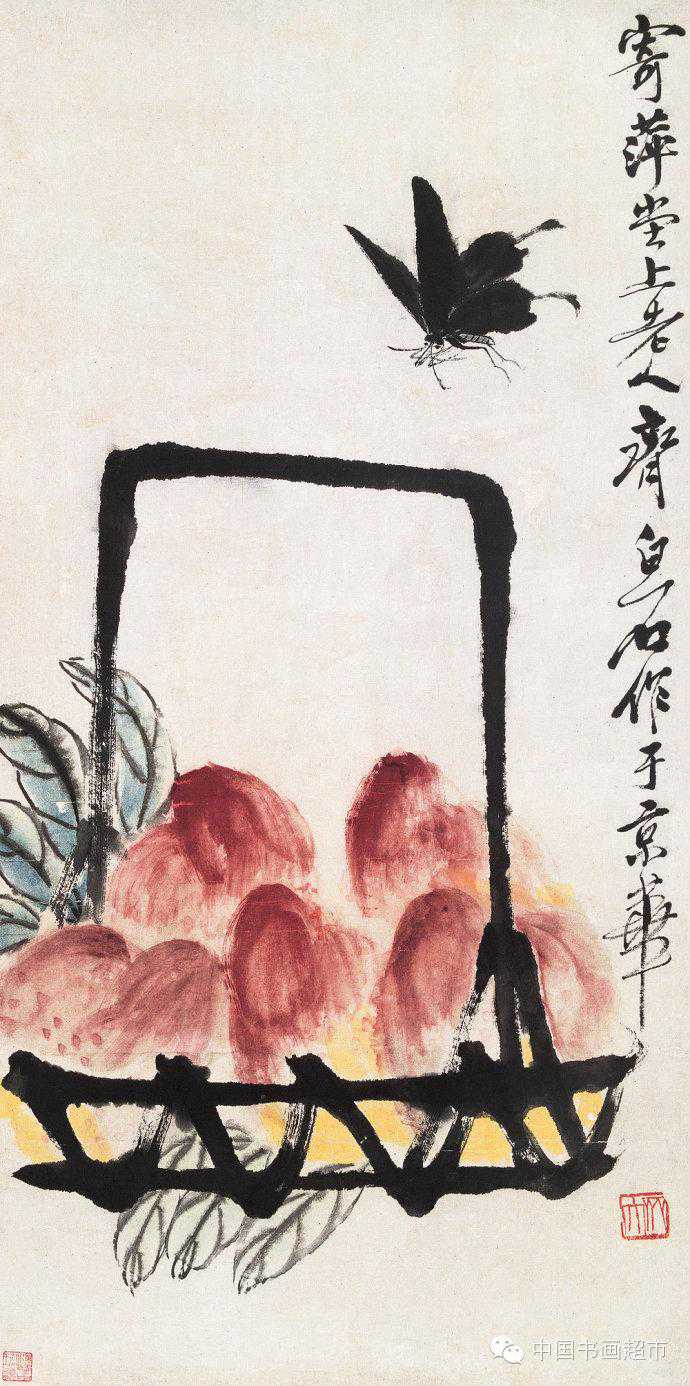 寄萍堂上老人齊白石作于京華
中国书画超市